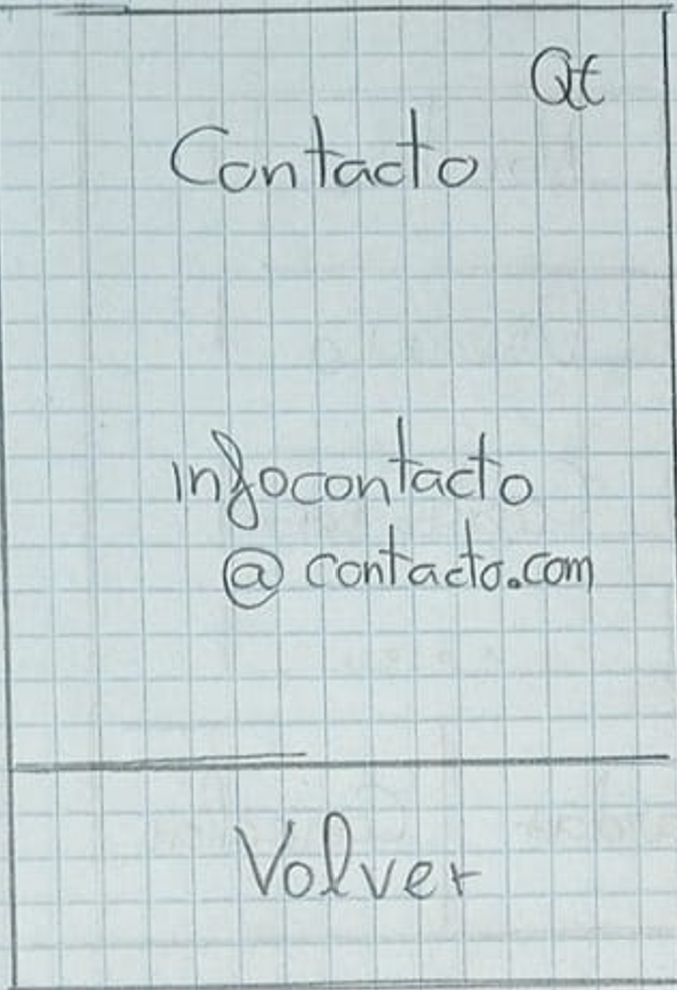 Qt
Contacto
infocontacto
@contacto.com
Volver